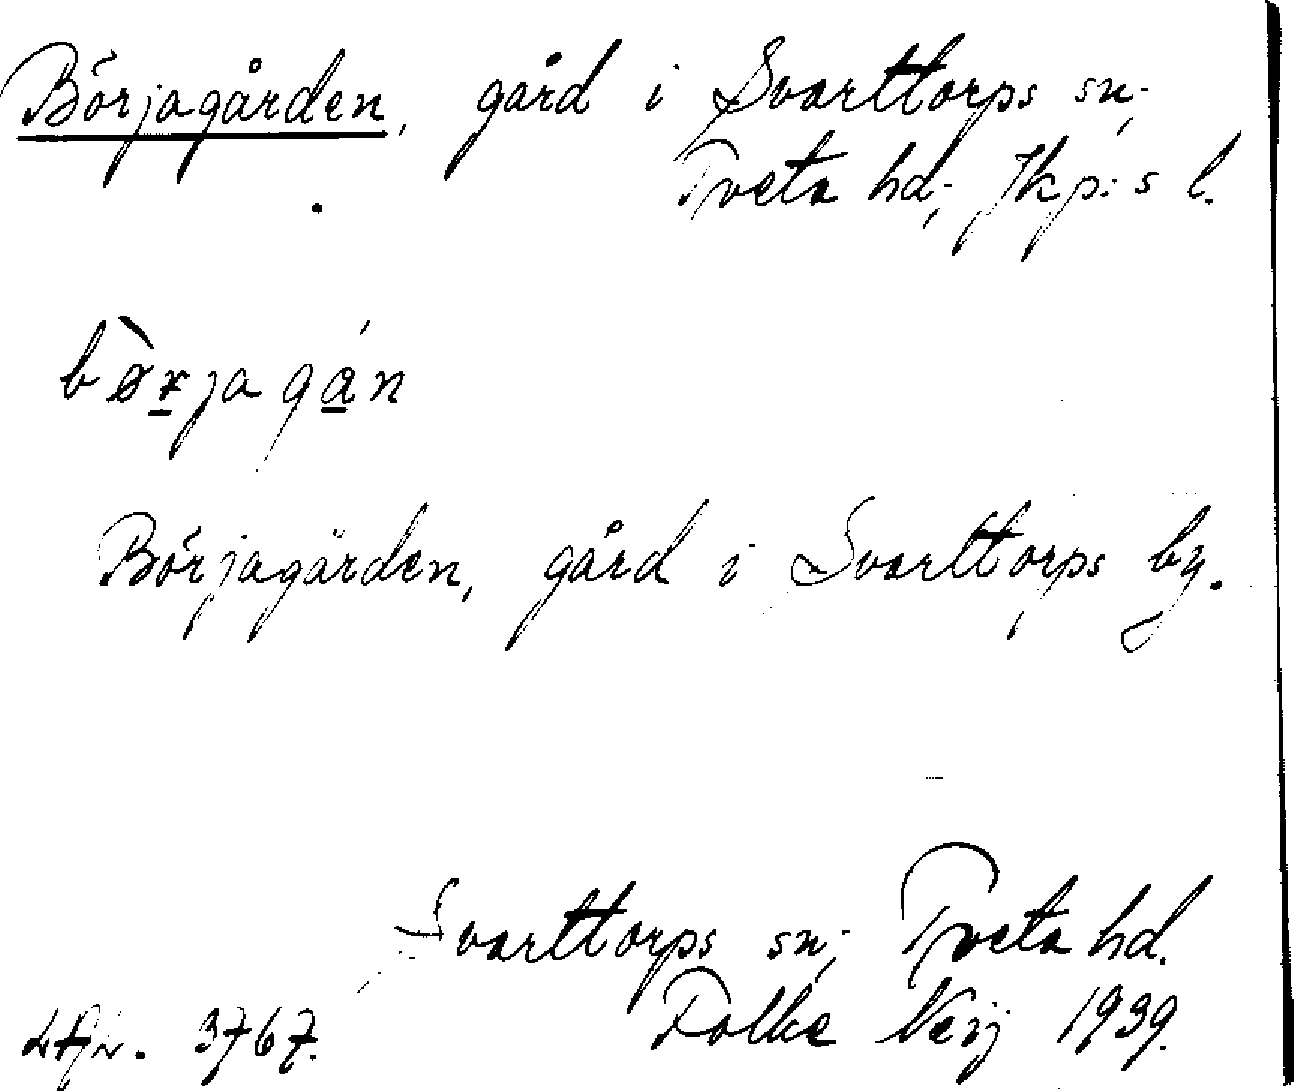 Börjagården, gård i Svarttorps sn;
Tveta hd; Jkp:s l.
bø̀r̠jagá̠n
Börjagården, gård i Svarttorps by.
Svarttorps sn; Tveta hd.
3767. Folke 1939.